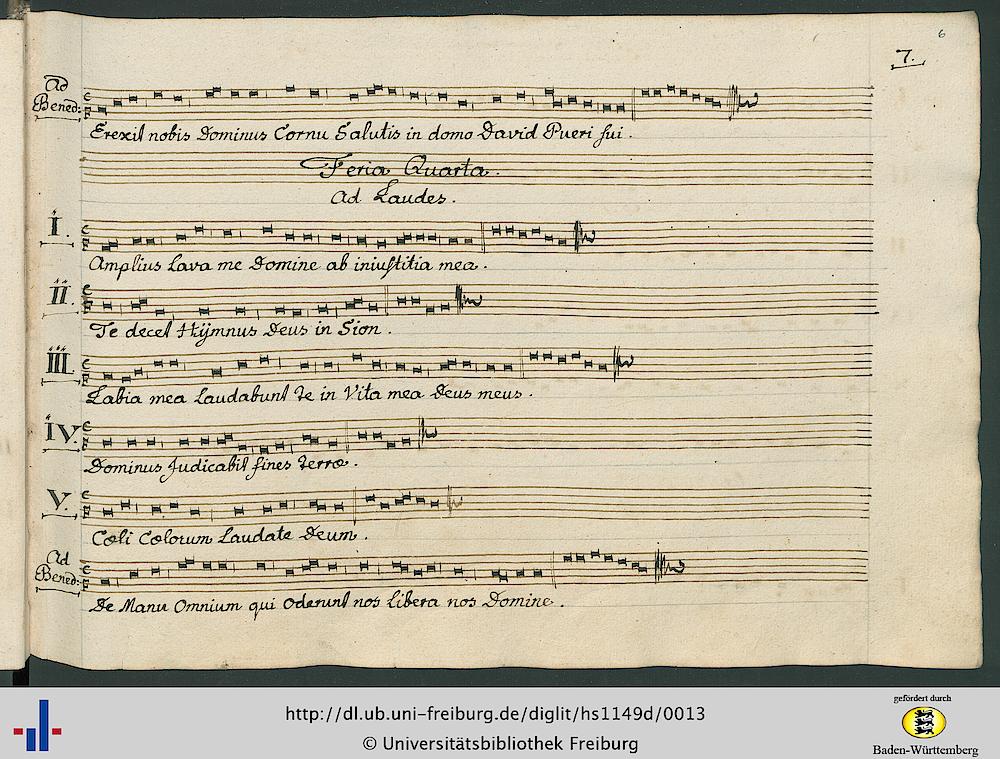 6
7.
Ad Bened:
Erexit nobis Dominus Cornu Salutis in domo David Pueri sui.
Feria Quarta.
Ad Laudes.
I.
Amplius lava me Domine ab iniustitia mea.
II.
Te decet Hÿmnus Deus in Sion.
III.
Labia mea laudabunt te in Vita mea Deus meus.
IV.
Dominus Judicabit fines terræ.
V.
Cœli Cœlorum laudate Deum.
Ad Bened:
De Manu Omnium qui oderunt nos libera nos Domine.
http://dl.ub.uni-freiburg.de/diglit/hs1149d/0013
© Universitätsbibliothek Freiburg
gefördert durch
Baden-Württemberg